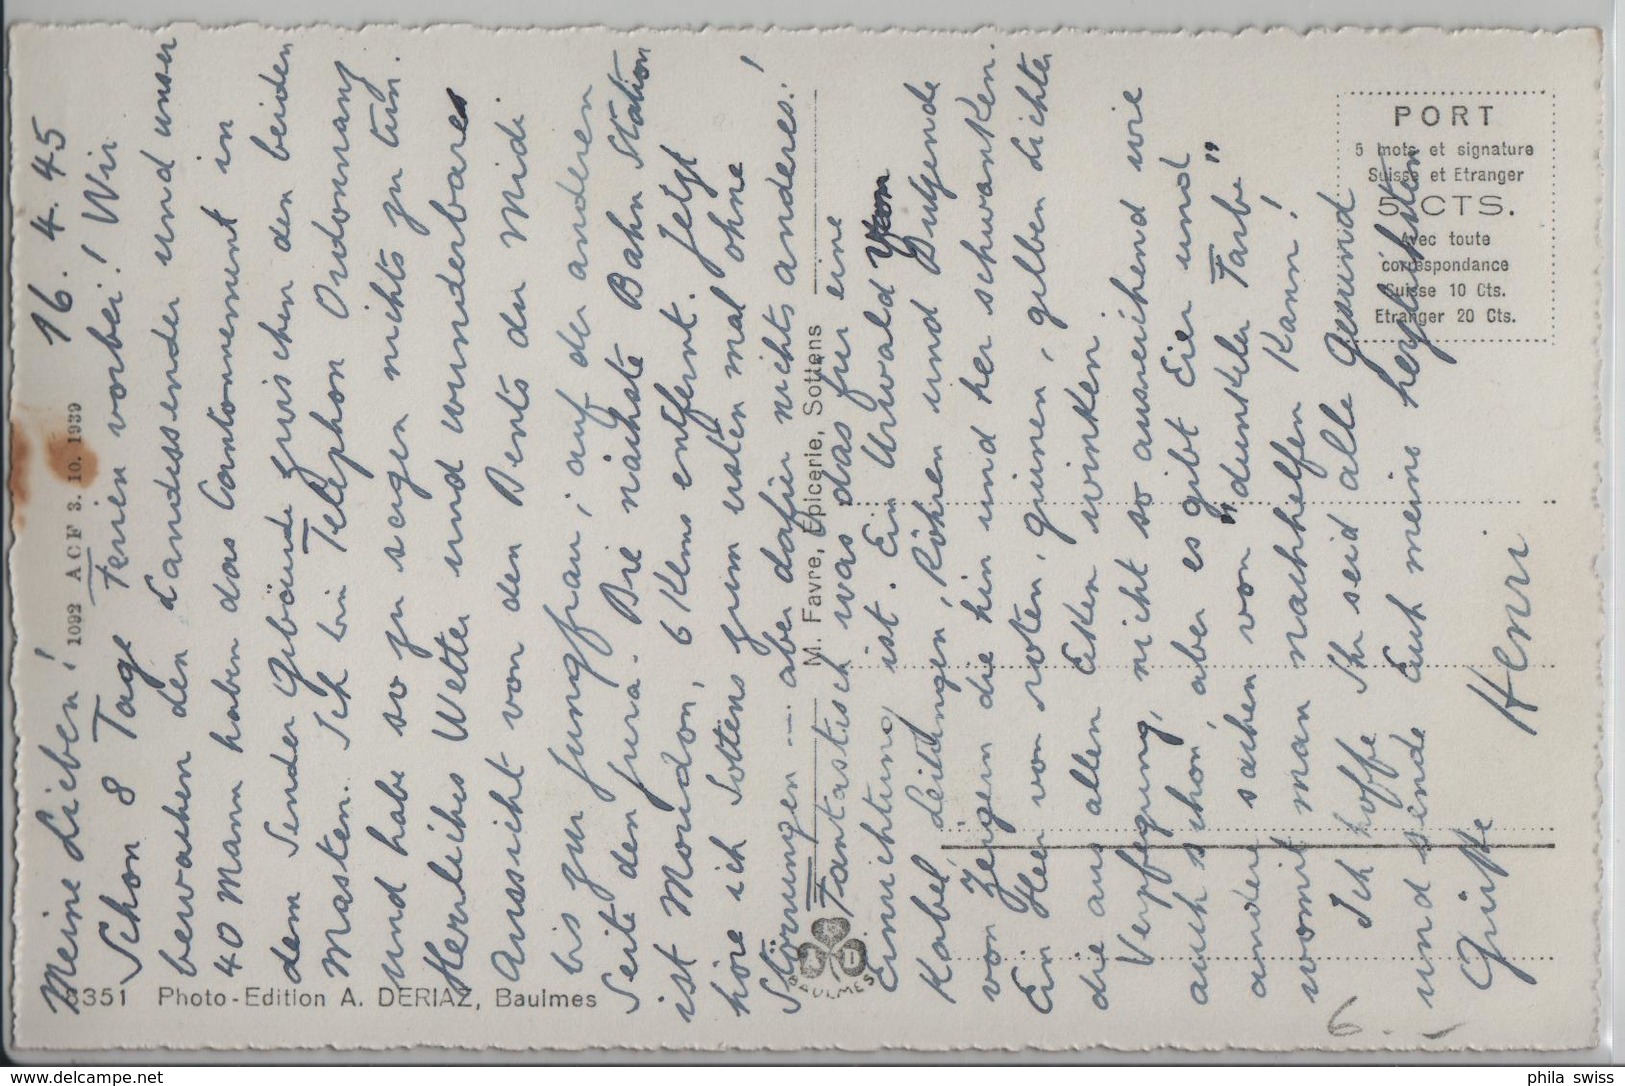 16. 4. 45
Meine Lieben!
Schon 8 Tage Ferien vorbei! Wir
bewachen den Landessender und unser
40 Mann haben das Cantonnement in
dem Sender Gebäude zwischen den beiden
Masten. Ich bin Telephon Ordonnanz
und habe so zu sagen nichts zu tun.
Herrliches Wetter und wunderbares
Aussicht von den Dents du Midi
bis zur Jungfrau, auf der anderen
Seite den Jura. Die nächste Bahn Station
ist Moudon, 6 Klms entfernt. Jetzt
höre ich Sottens zum ersten mal ohne
Störungen — aber dafür nichts anderes!
Fantastisch was das für eine
Einrichtung ist. Ein Urwald von
Kabel, Leitungen, Röhren und Dutzende
von Zeigern die hin und her schwanken.
Ein Heer von roten, grünen, gelben Lichter
die aus allen Ecken winken.
Verpflegung, nicht so ausreichend wie
auch schon, aber es gibt Eier und
andere sachen von "dunkler Farbe"
womit man nachhelfen kann!
Ich hoffe Ihr seid alle Gesund
und sende Euch meine herzlichsten
Grüsse Henri
1092 ACF 3. 10. 1939
6351 Photo-Edition A. DERIAZ, Baulmes
M. Favre, Epicerie, Sottens
A D
BAULMES
PORT
5 mots et signature
Suisse et Etranger
5 CTS.
Avec toute
correspondance
Suisse 10 Cts.
Etranger 20 Cts.
6.-
www.delcampe.net
phila_swiss